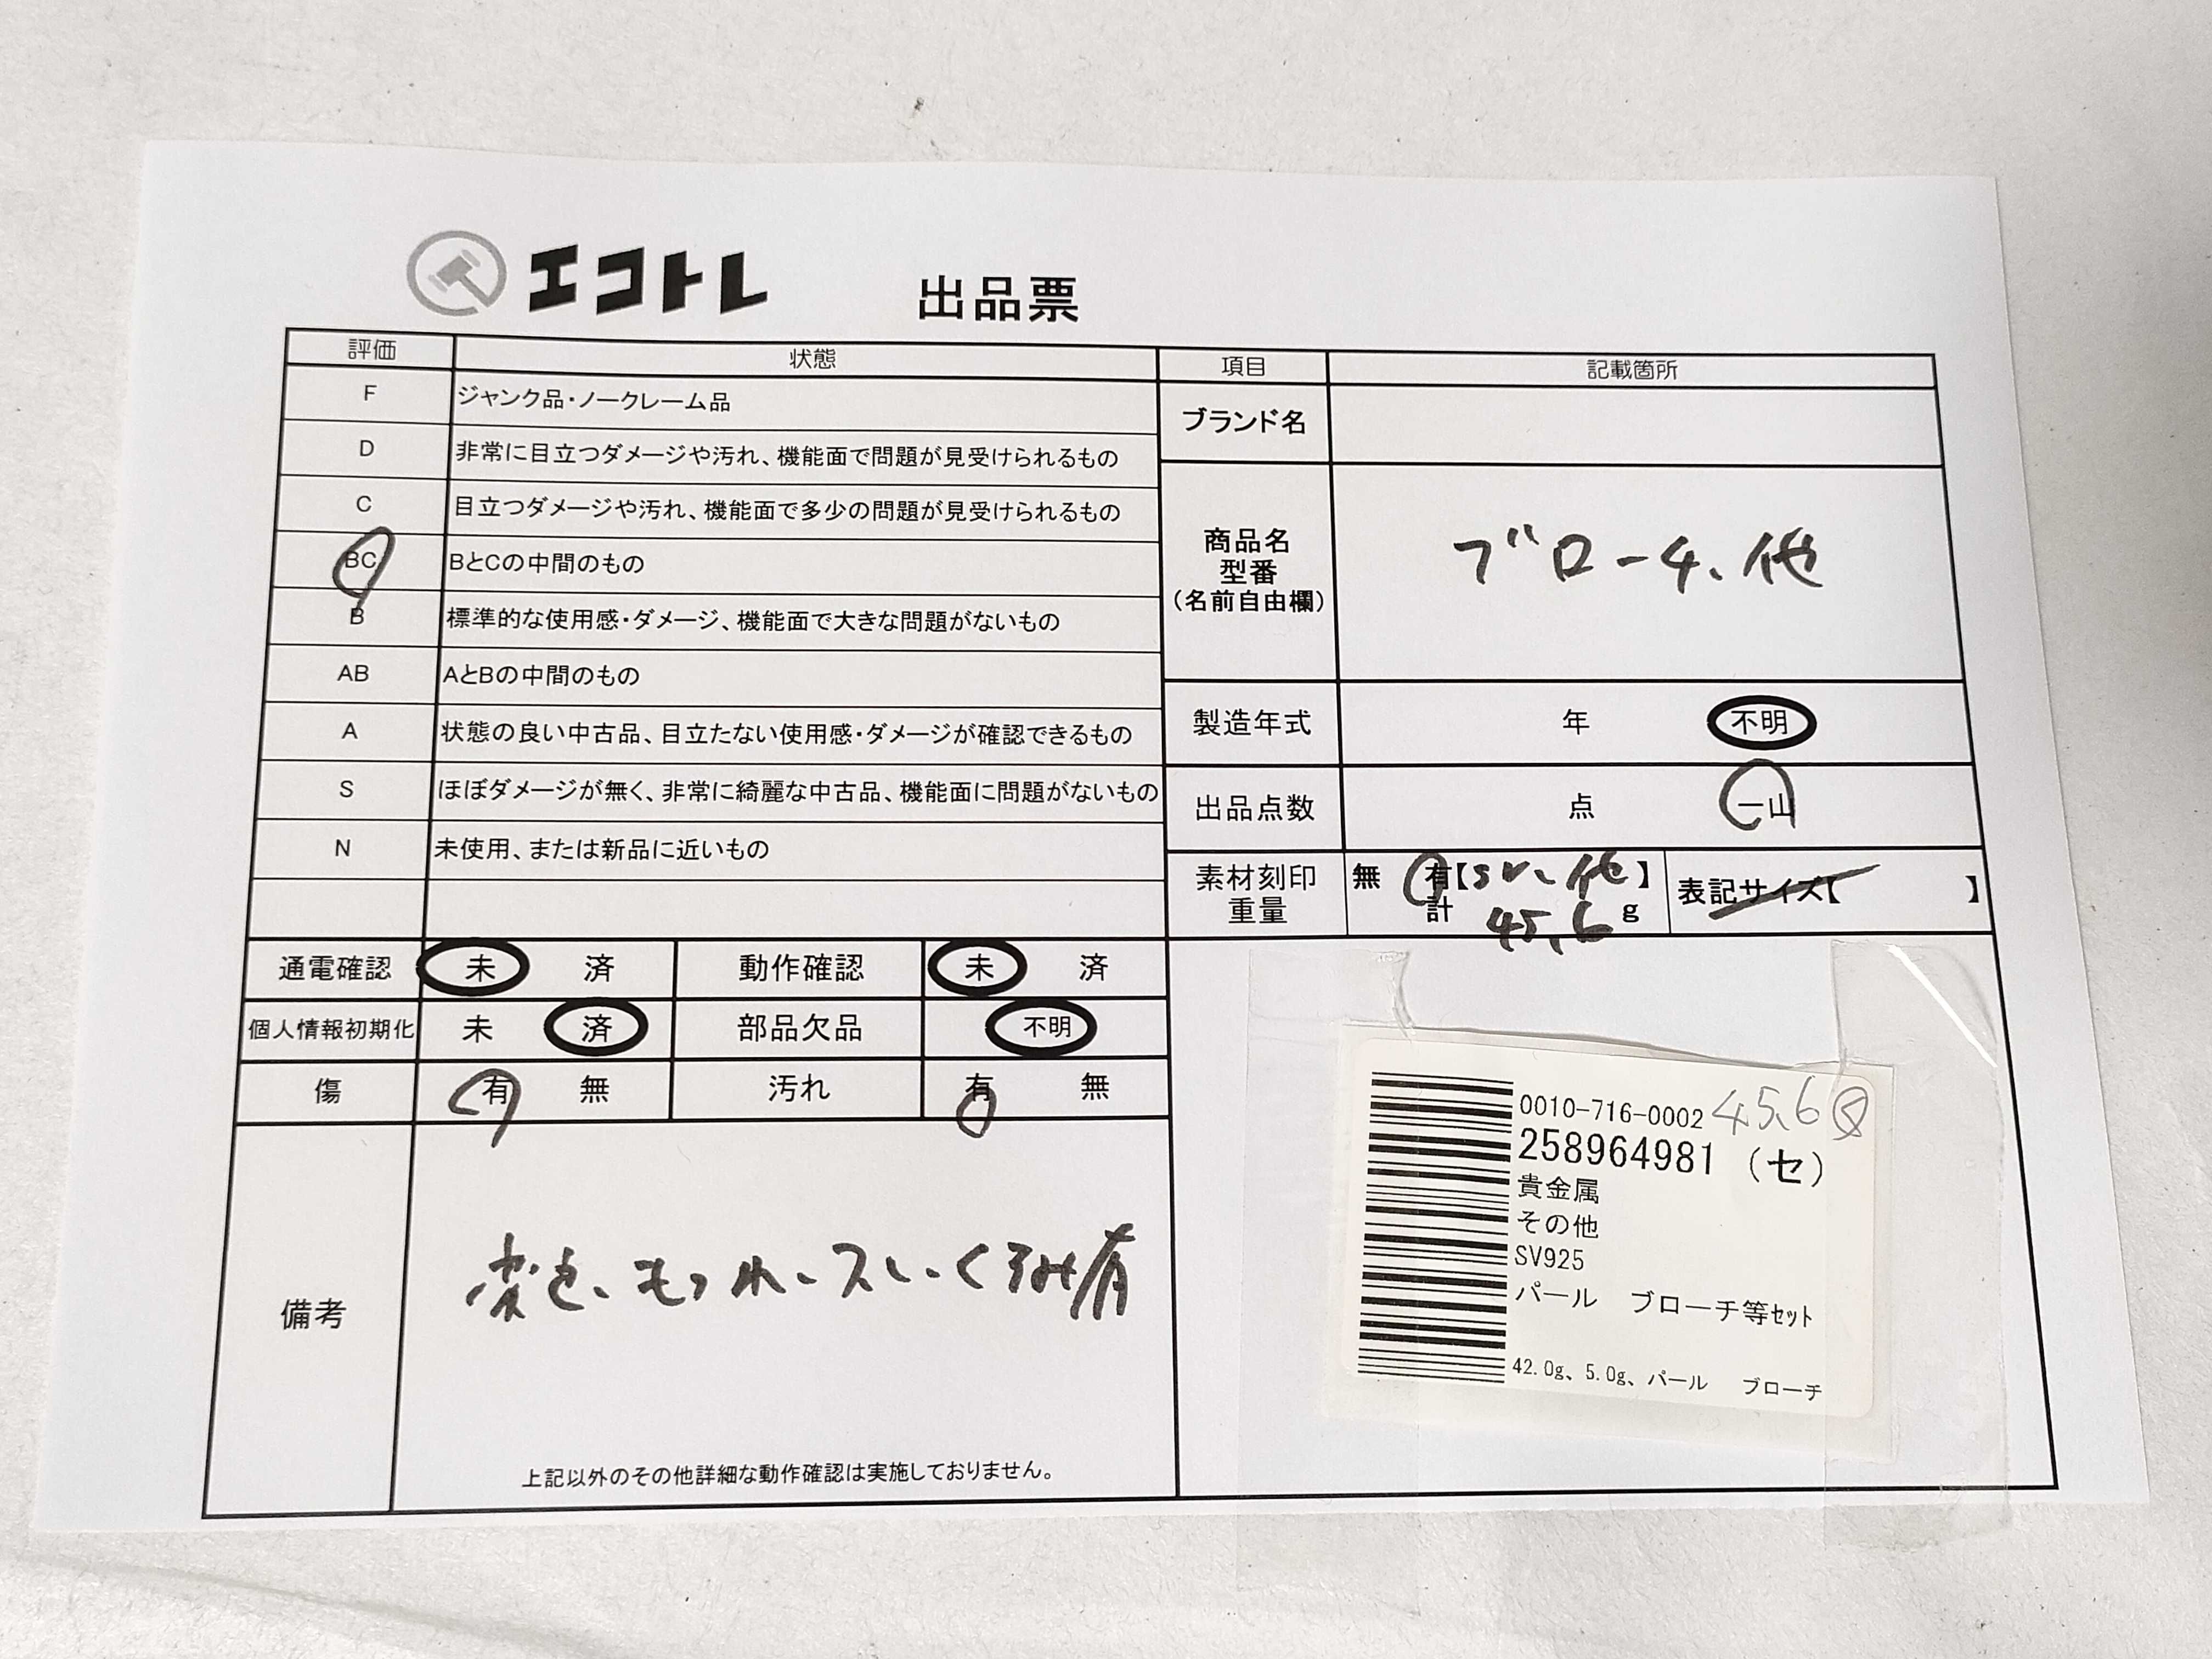 エコトレ 出品票
評価 状態
F ジャンク品・ノークレーム品
D 非常に目立つダメージや汚れ、機能面で問題が見受けられるもの
C 目立つダメージや汚れ、機能面で多少の問題が見受けられるもの
BC BとCの中間のもの
B 標準的な使用感・ダメージ、機能面で大きな問題がないもの
AB AとBの中間のもの
A 状態の良い中古品、目立たない使用感・ダメージが確認できるもの
S ほぼダメージが無く、非常に綺麗な中古品、機能面に問題がないもの
N 未使用、または新品に近いもの
項目 記載箇所
ブランド名
商品名
型番
(名前自由欄)
ブローチ、他
製造年式 年 不明
出品点数 点 一山
素材刻印 無 有【SV、他】 表記サイズ【 】
重量 計 45.6 g
通電確認 未 済 動作確認 未 済
個人情報初期化 未 済 部品欠品 不明
傷 有 無 汚れ 有 無
備考
変色、もつれ、スレ、くすみ有
上記以外のその他詳細な動作確認は実施しておりません。
0010-716-0002 45.6
258964981 (セ)
貴金属
その他
SV925
パール ブローチ等ｾｯﾄ
42.0g、5.0g、パール ブローチ